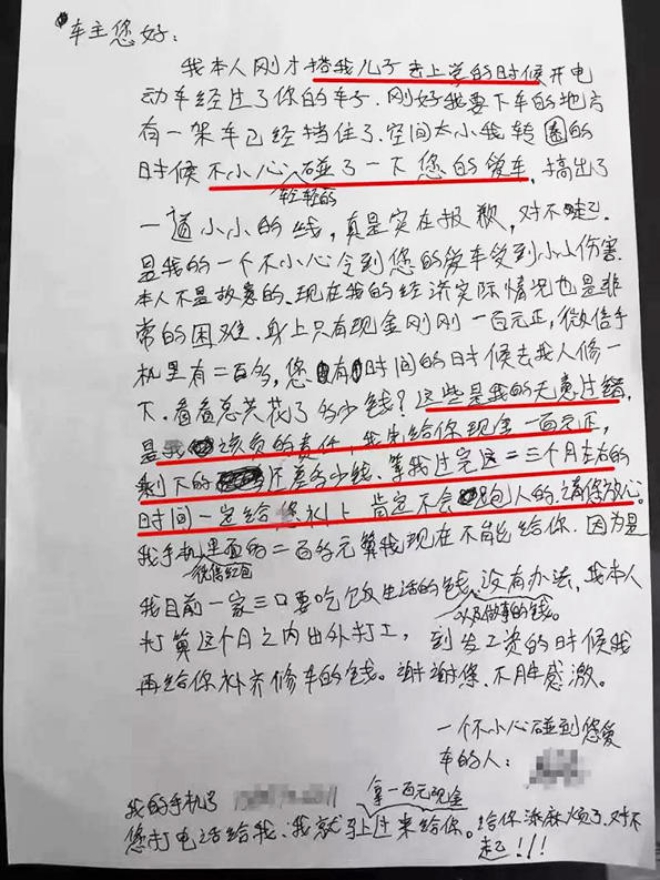 车主您好：
我本人刚才搭我儿子去上学的时候开电
动车经过了你的车子．刚好我要下车的地方
有一架车已经挡住了．空间太小我转圈的
时候不小心碰了一下您的爱车，搞出了
轻轻的
一道小小的线，真是实在报歉，对不起．
是我的一个不小心令到您的爱车受到小小伤害．
本人不是故意的、现在我的经济实际情况也是非
常的困难．身上只有现金刚刚一百元正，微信手
机里有二百多，您有时间的时候去找人修一
下．看看总共花了多少钱？这些是我的无意过错，
是我该负的责任，我先给你现金一百元正，
剩下的还差多少钱、等我过完这二三个月左右的
时间一定给您补上 肯定不会跑人的、请你放心。
我手机里面的二百多元算我现在不能给你．因为是
微信红包
我目前一家三口要吃饭生活的钱，没有办法，我本人
以及做事的钱。
打算这个月之内出外打工，到发工资的时候我
再给你补齐修车的钱。谢谢您、不胜感激。
一个不小心碰到您爱
车的人：
我的手机号
拿一百元现金
您打电话给我、我就马上过来给你。给你添麻烦了．对不
起！！！